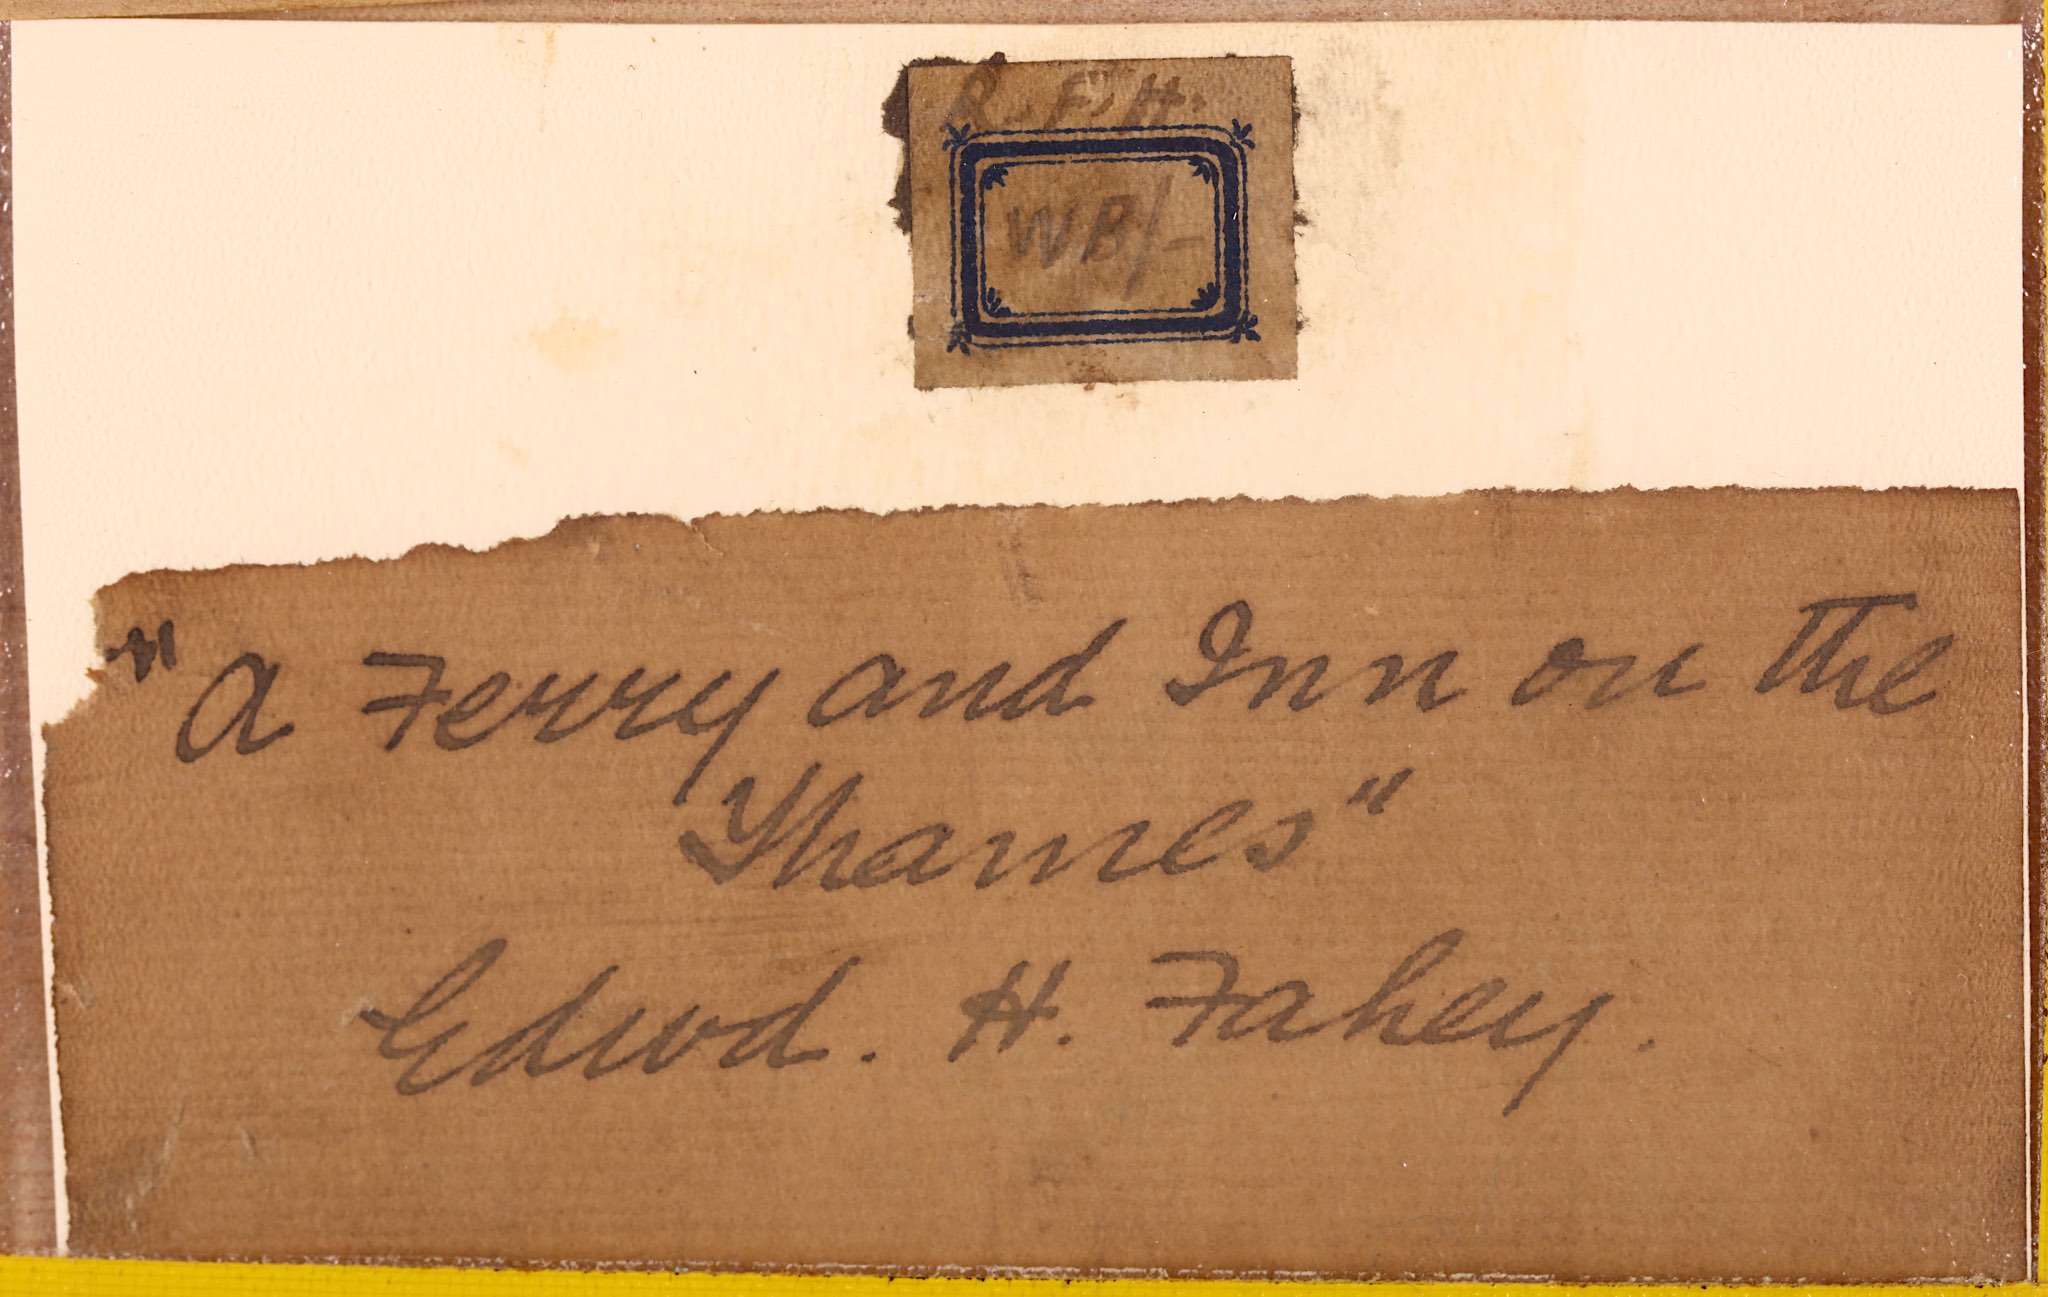 R. F. H.
WB/-
"A Ferry and Inn on the
Thames"
Edwd. H. Fahey.